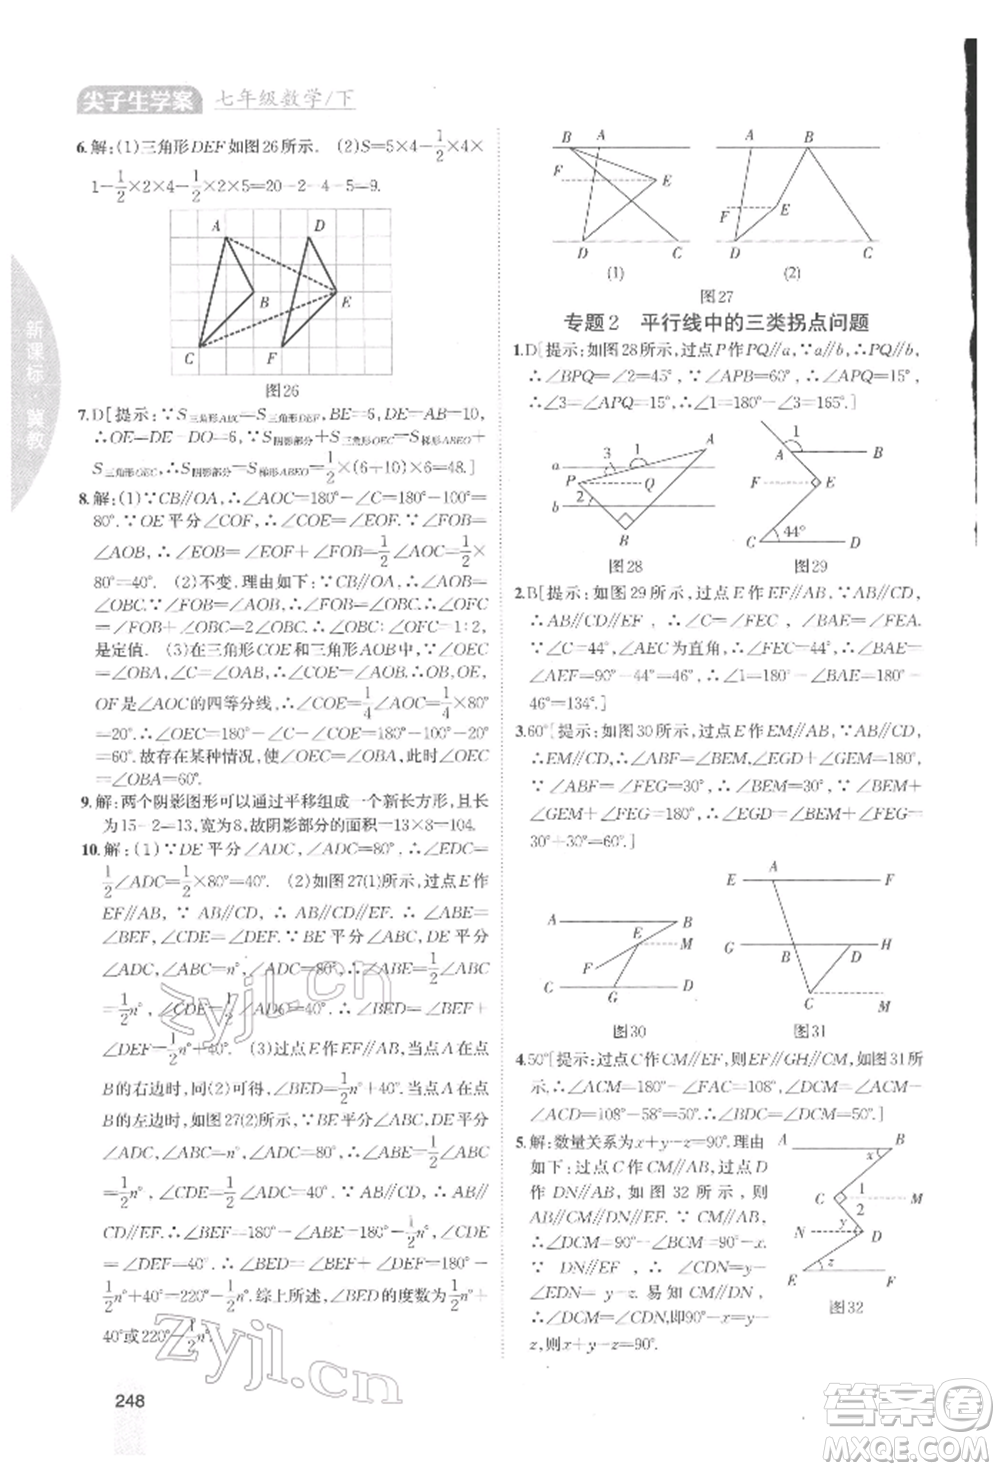 尖子生学案 七年级数学/下
新课标·冀教
6.解:(1)三角形DEF如图26所示. (2)S=5×4-1/2×4×
1-1/2×2×4-1/2×2×5=20-2-4-5=9.
A D
B E
C F
图26
7.D[提示:∵S三角形ABC=S三角形DEF,BE=6,DE=10,
∴OE=DE-DO=6,∴S阴影部分+S三角形OEC=S梯形ABEO+
S三角形OEC,∴S阴影部分=S梯形ABEO=1/2×(6+10)×6=48.]
8.解:(1)∵CB∥OA,∴∠AOC=180°-∠C=180°-100°=
80°.∵OE平分∠COF,∴∠COE=∠EOF.∵∠FOB=
∠AOB,∴∠EOB=∠EOF+∠FOB=1/2∠AOC=1/2×
80°=40°. (2)不变.理由如下:∵CB∥OA,∴∠AOB=
∠OBC.∵∠FOB=∠AOB,∴∠FOB=∠OBC,∴∠OFC
=∠FOB+∠OBC=2∠OBC,∴∠OBC:∠OFC=1:2,
是定值. (3)在三角形COE和三角形AOB中,∵∠OEC
=∠OBA,∠C=∠OAB,∴∠COE=∠AOB,∴OB,OE,
OF是∠AOC的四等分线,∴∠COE=1/4∠AOC=1/4×80°
=20°.∴∠OEC=180°-∠C-∠COE=180°-100°-20°
=60°.故存在某种情况,使∠OEC=∠OBA,此时∠OEC=
∠OBA=60°.
9.解:两个阴影图形可以通过平移组成一个新长方形,且长
为15-2=13,宽为8,故阴影部分的面积=13×8=104.
10.解:(1)∵DE平分∠ADC,∠ADC=80°,∴∠EDC=
1/2∠ADC=1/2×80°=40°. (2)如图27(1)所示,过点E作
EF∥AB,∵AB∥CD,∴AB∥CD∥EF,∴∠ABE=
∠BEF,∠CDE=∠DEF.∵BE平分∠ABC,DE平分
∠ADC,∠ABC=n°,∠ADC=80°,∴∠ABE=1/2∠ABC=
1/2n°,∠CDE=1/2∠ADC=40°,∴∠BED=∠BEF+
∠DEF=1/2n°+40°. (3)过点E作EF∥AB,当点A在点
B的右边时,同(2)可得,∠BED=1/2n°+40°;当点A在点
B的左边时,如图27(2)所示,∵BE平分∠ABC,DE平分
∠ADC,∠ABC=n°,∠ADC=80°,∴∠ABE=1/2∠ABC=
1/2n°,∠CDE=1/2∠ADC=40°.∵AB∥CD,∴AB∥
CD∥EF,∴∠BEF=180°-∠ABE=180°-1/2n°,∠CDE=
∠DEF=40°,∴∠BED=∠BEF+∠DEF=180°-
1/2n°+40°=220°-1/2n°.综上所述,∠BED的度数为1/2n°+
40°或220°-1/2n°.
248
B A
F E
D C
(1)
A B
F E
D C
(2)
图27
专题2 平行线中的三类拐点问题
1.D[提示:如图28所示,过点P作PQ∥a,∵a∥b,∴PQ∥b,
∴∠BPQ=∠2=45°,∵∠APB=60°,∴∠APQ=15°,
∴∠3=∠APQ=15°,∴∠1=180°-∠3=165°.]
a 3 1 A
P Q
b 2
B
图28
1
A B
F E
44°
C D
图29
2.B[提示:如图29所示,过点E作EF∥AB,∵AB∥CD,
∴AB∥CD∥EF,∴∠C=∠FEC,∠BAE=∠FEA.
∵∠C=44°,∠AEC为直角,∴∠FEC=44°,∴∠BAE=
∠AEF=90°-44°=46°,∴∠1=180°-∠BAE=180°-
46°=134°.]
3.60°[提示:如图30所示,过点E作EM∥AB,∵AB∥CD,
∴EM∥CD,∴∠ABF=∠BEM,∠EGD+∠GEM=180°,
∵∠ABF=∠EGC=30°,∠EGC+∠EGD=180°,∴∠BEM=
∠GEM=∠EGC=30°,∴∠BEG=∠BEM+∠GEM=
30°+30°=60°.]
A B
E M
F
C G D
图30
E A F
G B D H
C M
图31
4.50°[提示:过点C作CM∥EF,则EF∥GH∥CM,如图31所
示.∴∠ACM=180°-∠FAC=108°,∠DCM=∠ACM-
∠ACD=108°-58°=50°,∴∠BDC=∠DCM=50°.]
5.解:数量关系为x+y-z=90°.理由
如下:过点C作CM∥AB,过点D
作DN∥AB,如图32所示,则
AB∥CM∥DN∥EF.∴∠1=x.
∵∠DCM=90°-∠1=90°-x.
∵DN∥EF,∴∠EDN=z,
∴∠CDN=y-z.易知CM∥DN,
∴∠DCM=∠CDN,即90°-x=
y-z,则x+y-z=90°.
A B
x
C 1 M
2
N y D
E z F
图32
zyjl.cn
zyjl.cn
答案圈
MXQE.COM